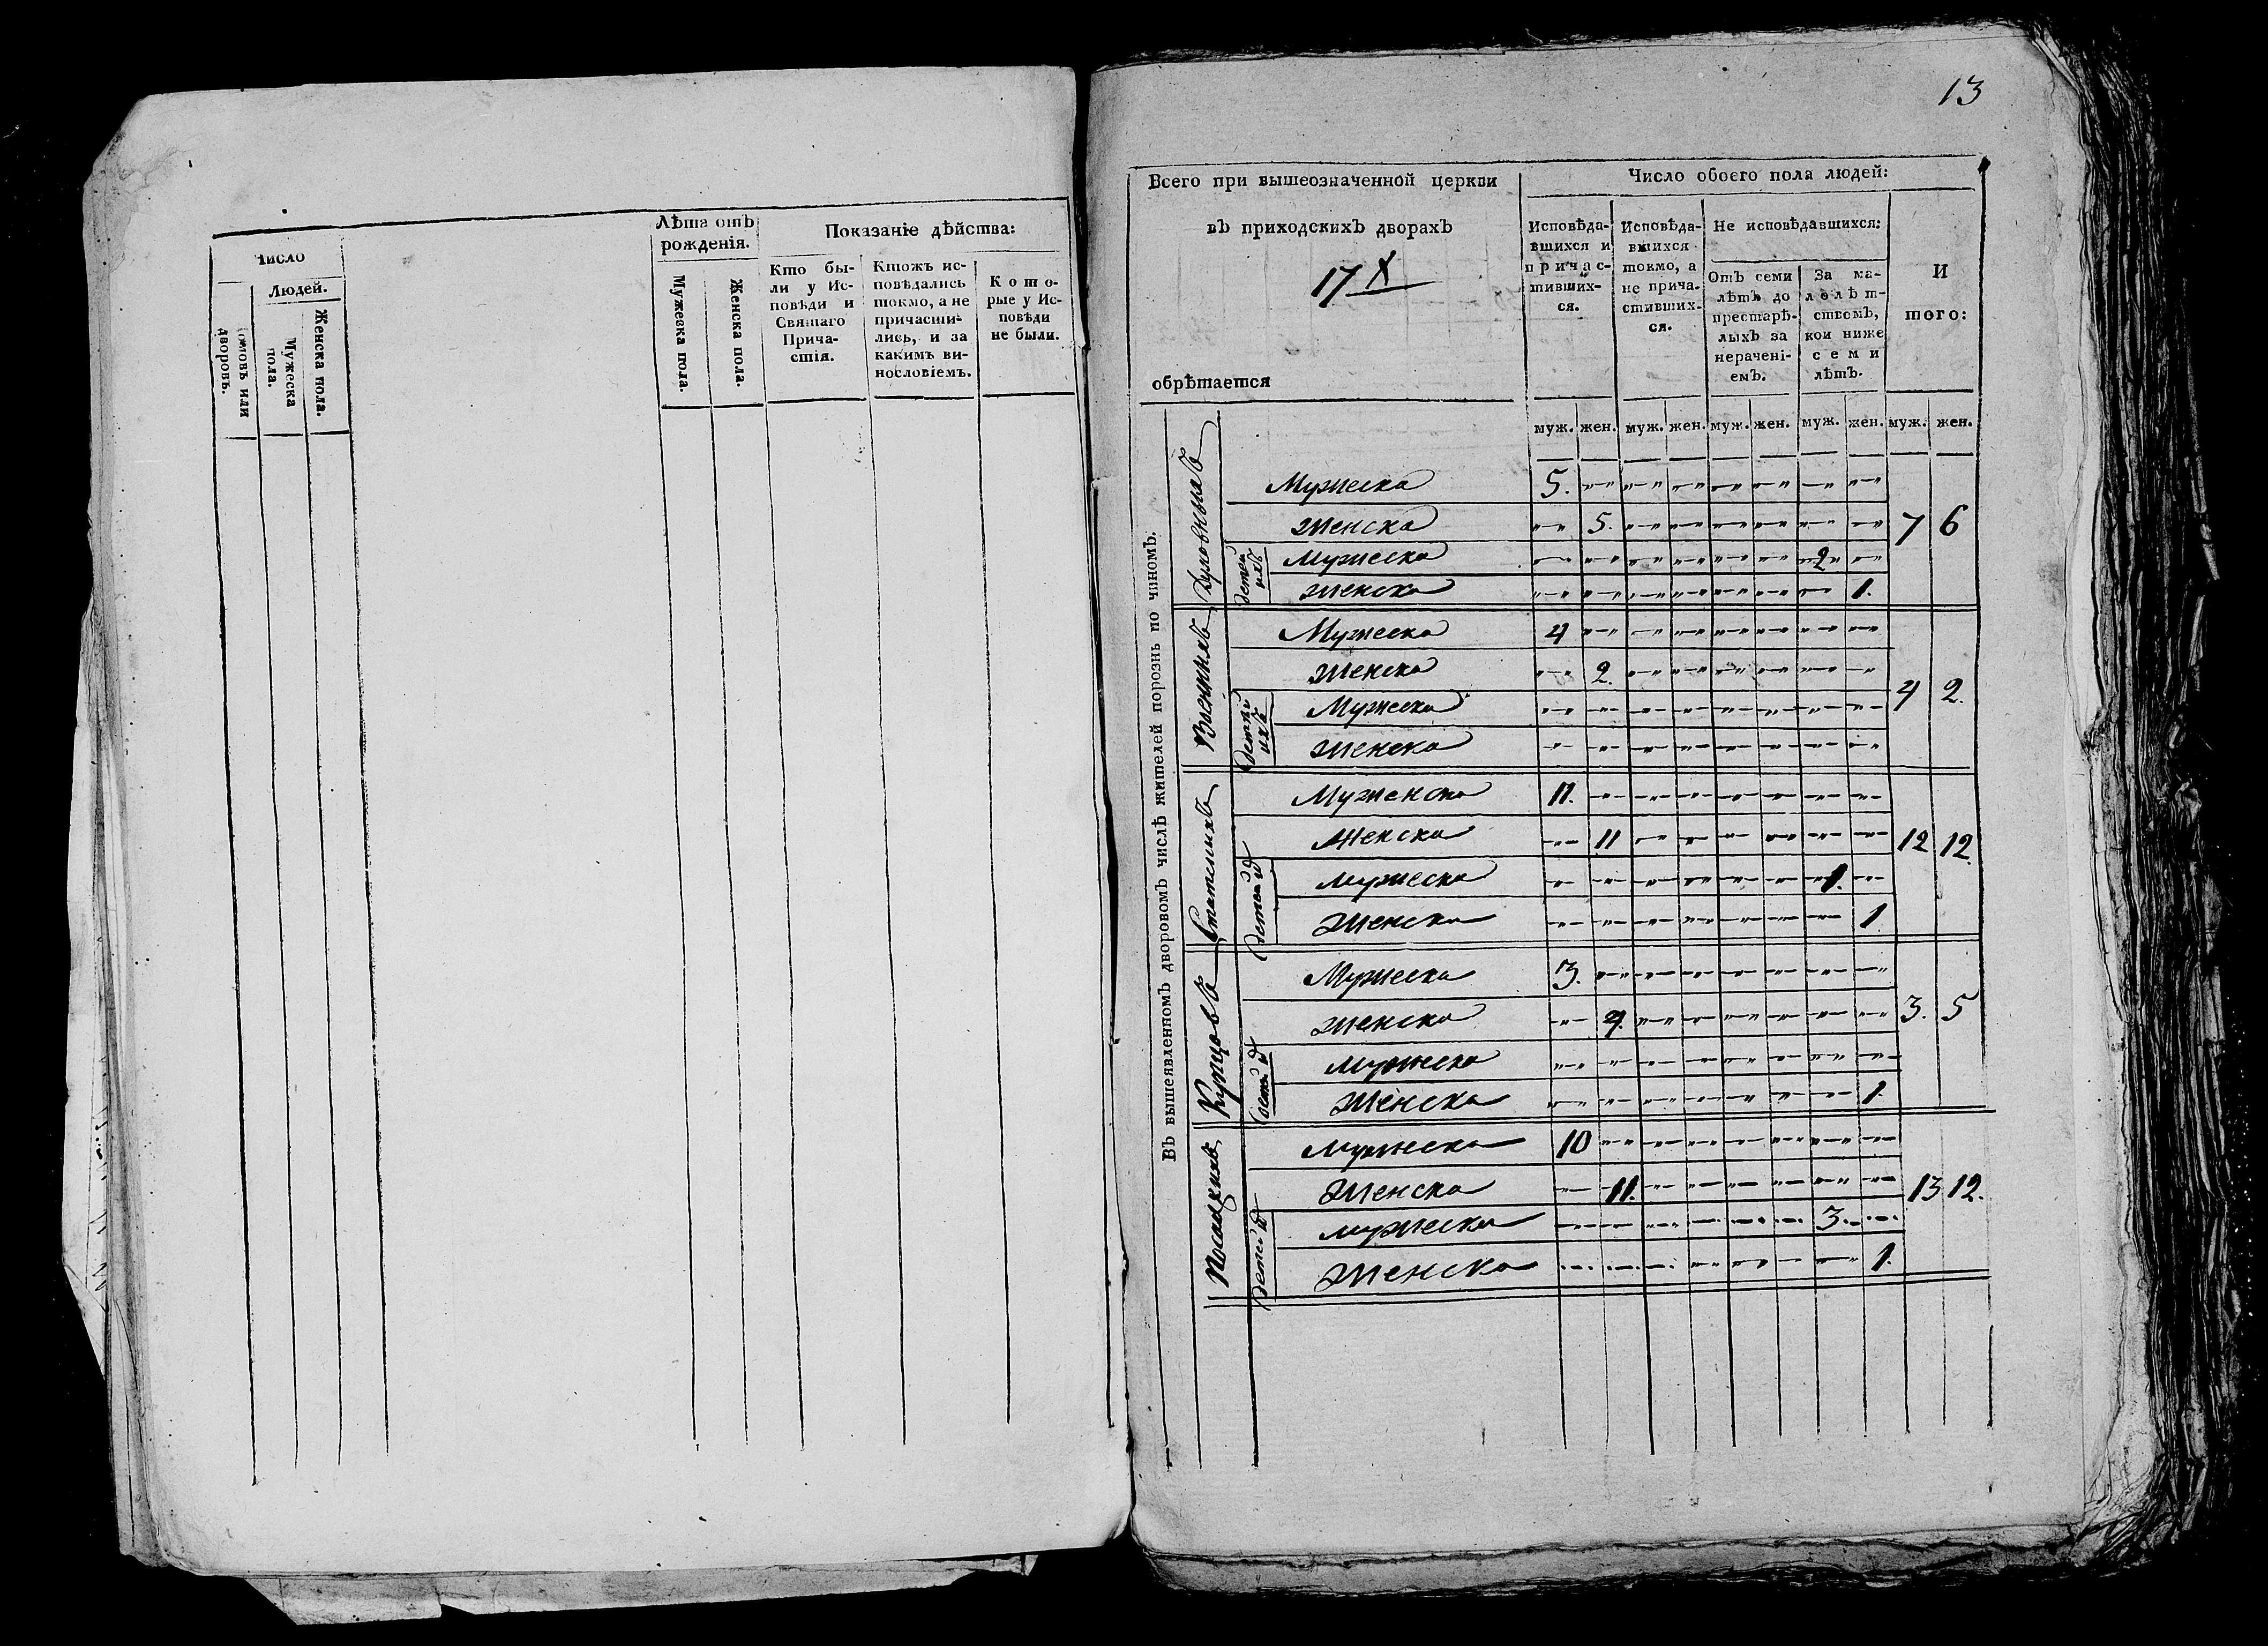 Число
Людей.
Домовъ или дворовъ.
Мужеска пола.
Женска пола.
Лѣта отъ
рожденія.
Мужеска пола.
Женска пола.
Показаніе дѣйства:
Кто бы-
ли у Ис-
повѣди и
Святаго
Прича-
стія.
Ктожъ ис-
повѣдались
токмо, а не
причасти-
лись, и за
какимъ ви-
нословіемъ.
Кото-
рые у Ис-
повѣди
не были.
13
Всего при вышеозначенной церкви
въ приходскихъ дворахъ
17 X
обрѣтается
Число обоего пола людей:
Исповѣда-
вшихся и
причас-
тивших-
ся.
Исповѣда-
вшихся
токмо, а
не прича-
стивших-
ся.
Не исповѣдавшихся:
Отъ семи
лѣтъ до
престарѣ-
лыхъ за
нерачені-
емъ.
За ма-
лолѣт-
ствомъ,
кои ниже
семи
лѣтъ.
И
того:
муж. жен. муж. жен. муж. жен. муж. жен. муж. жен.
Въ вышеявленномъ дворовомъ числѣ жителей порознь по чиномъ.
Духовныхъ
Мужеска 5.
Женска 5. 7 6
детей ихъ
Мужеска 2
Женска 1.
Военныхъ
Мужеска 4
Женска 2. 4 2.
детей ихъ
Мужеска
Женска
Статскихъ
Муженска 11.
Женска 11 12 12
детей
Мужеска 1.
Женска 1
Купцовъ
Мужеска 3.
Женска 4. 3. 5
детей
Мужеска
Женска 1
Посадкихъ
Мужеска 10
Женска 11. 13 12.
детей
Мужеска 3.
Женска 1.